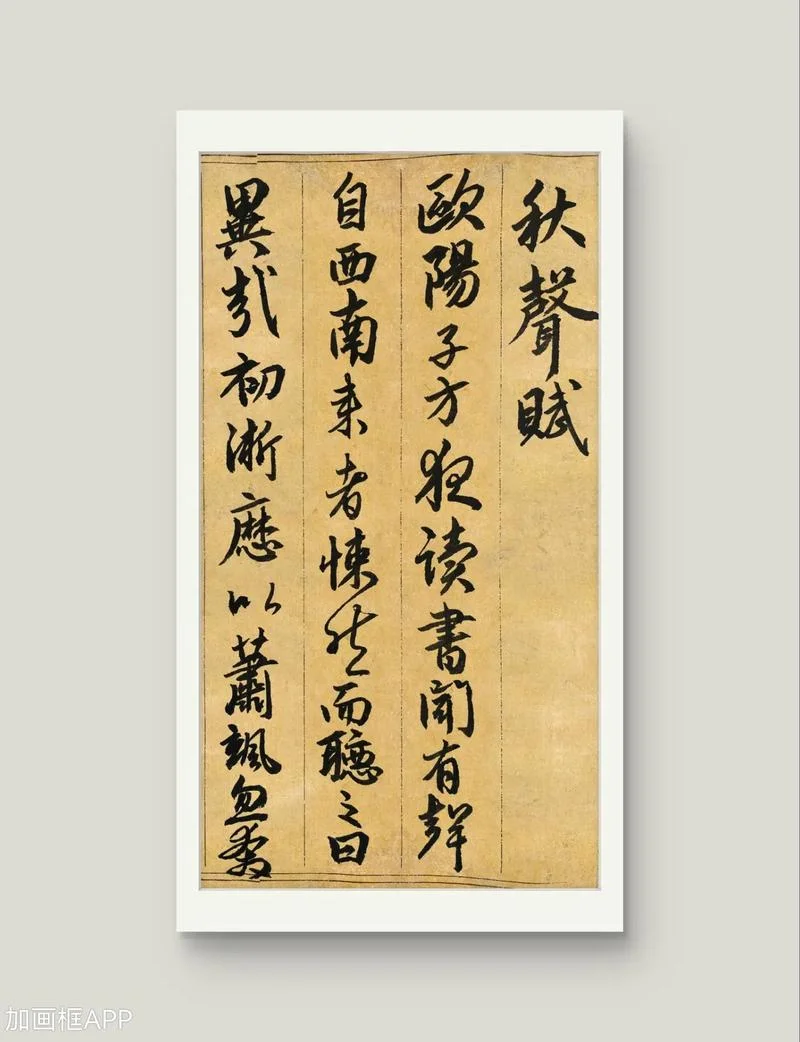 秋聲賦
歐陽子方夜讀書聞有聲
自西南来者悚然而聽之曰
異哉初淅瀝以蕭颯忽奔
加画框APP